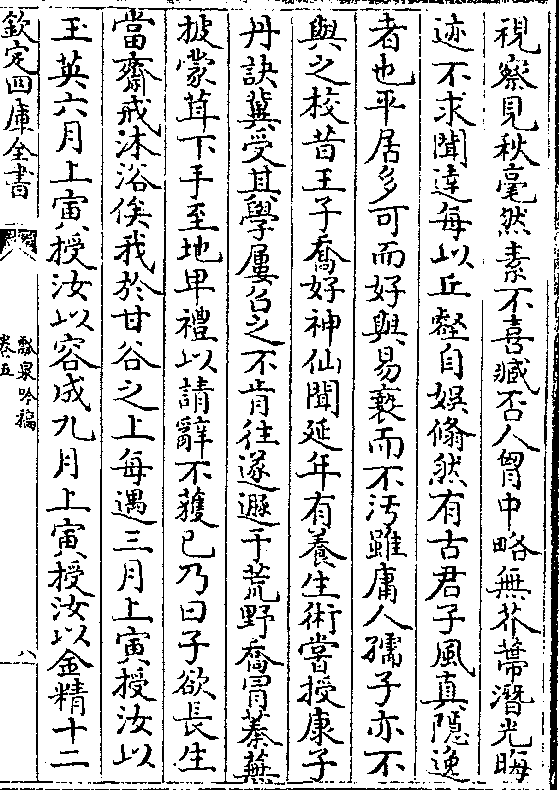 視察見秋毫然素不喜臧否人胷中略無芥蔕潛光晦
迹不求聞達每以丘壑自娯翛然有古君子風真隱逸
者也平居多可而好與易褻而不汚雖庸人孺子亦不
與之校昔王子喬好神仙聞延年有養生術嘗授康子
丹訣冀受其學屢召之不肯往遂遯于荒野喬冐蓁蕪
披蒙茸下手至地卑禮以請辭不獲已乃曰子欲長生
當齋戒沐浴俟我於甘谷之上每遇三月上寅授汝以
玉英六月上寅授汝以容成九月上寅授汝以金精十二
欽定四庫全書
瓢泉吟稿
卷五
八